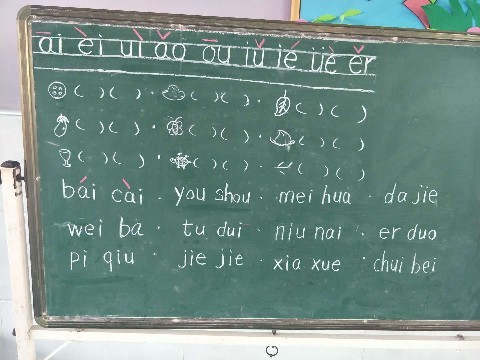 āi èi uì ǎo ōu iǔ ié üè ěr
( )( ) · ( )( ) · ( )( )
( )( ) · ( )( ) · ( )( )
( )( ) · ( )( ) · ( )( )
bái cài · you shou · mei hua · da jie
wei ba · tu dui · niu nai · er duo
pi qiu · jie jie · xia xue · chui bei